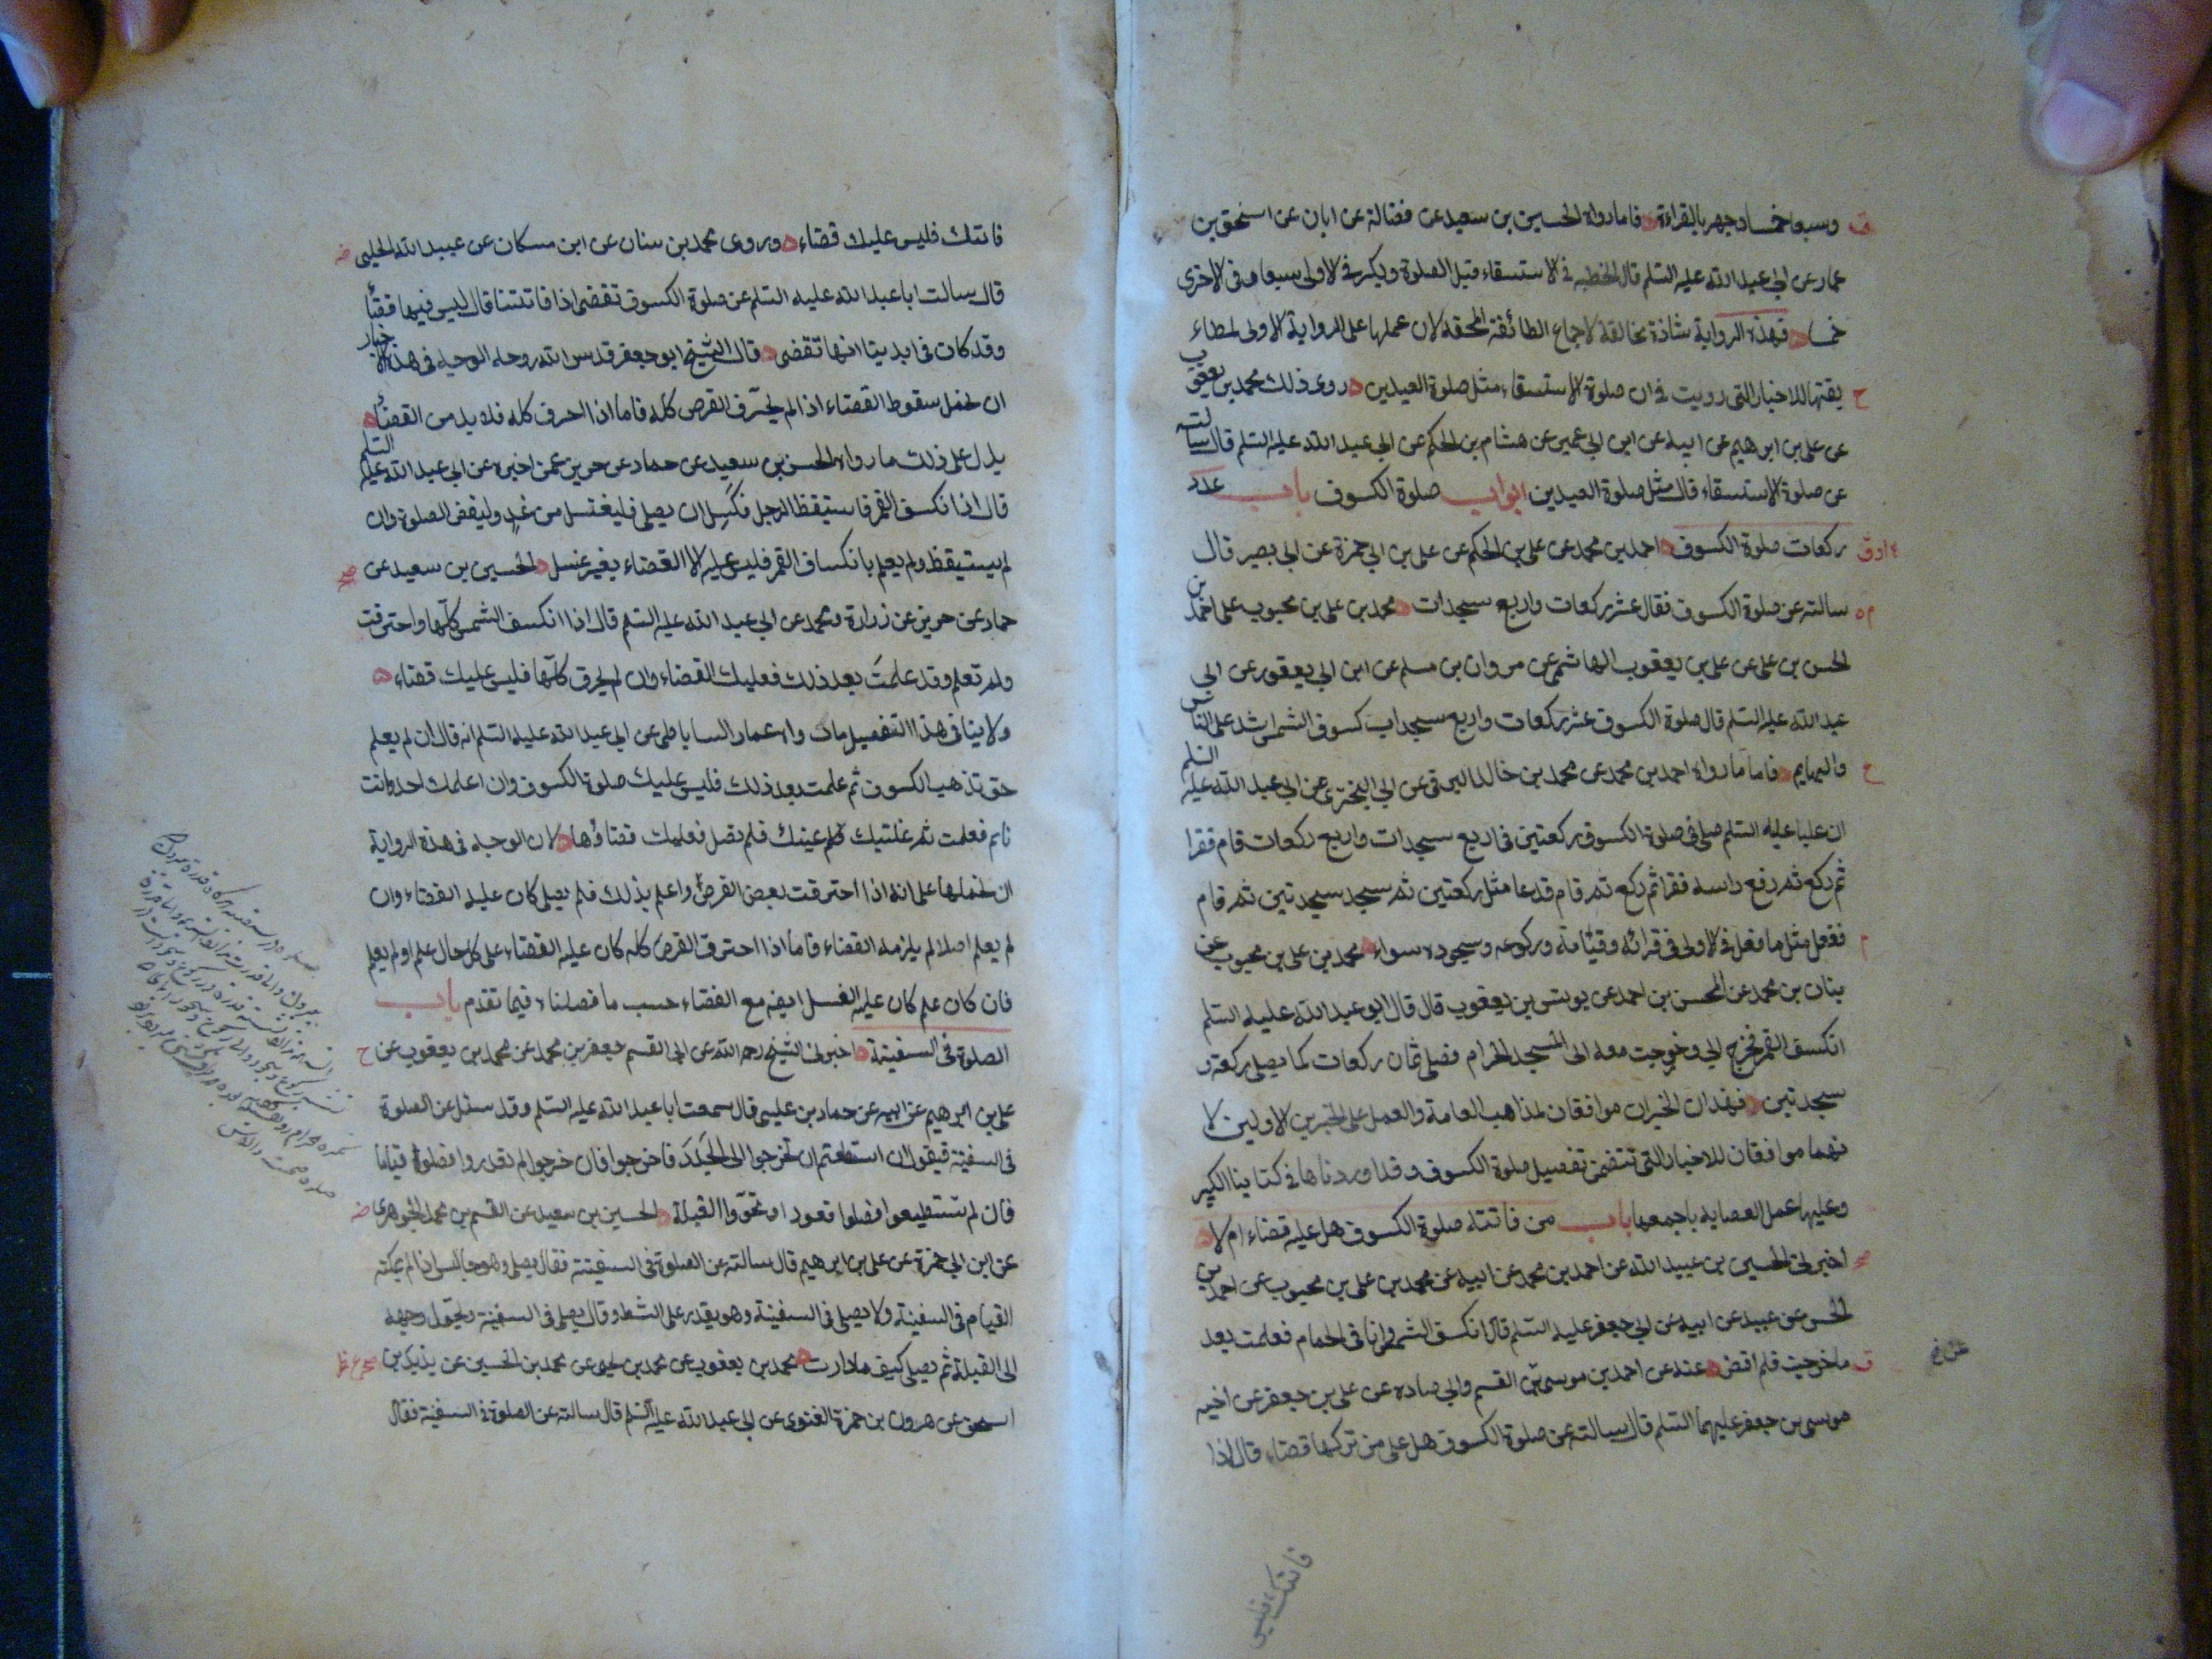 وسبعا خمسا ويجهر بالقراءة فاما رواه الحسين بن سعيد عن فضالة عن ابان عن اسحق بن
عمار عن ابي عبد الله عليه السلم قال الخطبه في الاستسقاء قبل الصلوة ويكبر في الاولى سبعا وفي الاخرى
خمسا فهذه الرواية شاذة مخالفة لاجماع الطائفة المحقة لان عملها على الرواية الاولى لمطا
بقتها للاخبار التي رويت في ان صلوة الاستسقاء مثل صلوة العيدين روى ذلك محمد بن يعقوب
عن علي بن ابرهيم عن ابيه عن ابن ابي عمير عن هشام بن الحكم عن ابي عبد الله عليه السلم قال سالته
عن صلوة الاستسقاء قال مثل صلوة العيدين ابواب صلوة الكسوف باب عدد
ركعات صلوة الكسوف احمد بن محمد عن علي بن الحكم عن علي بن ابي حمزة عن ابي بصير قال
سالته عن صلوة الكسوف فقال عشر ركعات واربع سجدات محمد بن علي بن محبوب على احمد بن
الحسن بن علي عن علي بن يعقوب الهاشمي عن مروان بن مسلم عن ابن ابي يعفور عن ابي
عبد الله عليه السلم قال صلوة الكسوف عشر ركعات واربع سجدات كسوف الشمس اشد على الناس
والبهايم فاما ما رواه احمد بن محمد عن محمد بن خالد البرقي عن ابي البختري عن ابي عبد الله عليه السلم
ان عليا عليه السلم صلى في صلوة الكسوف ركعتين في اربع سجدات واربع ركعات قام فقرا
ثم ركع ثم رفع راسه فقرا ثم ركع ثم قام فدعا مثل ركعتين ثم سجد سجدتين ثم قام
ففعل مثل ما فعل في الاولى في قرائه وقيامه وركوعه وسجوده سواء محمد بن علي بن محبوب عن
بنان بن محمد عن المحسن بن احمد عن يونس بن يعقوب قال قال ابو عبد الله عليه السلم
انكسف القمر فخرج ابي وخرجت معه الى المسجد الحرام فصلى ثمان ركعات كما يصلي ركعة و
سجدتين فهذان الخبران موافقان لمذاهب العامة والعمل على الخبرين الاولين لا
نهما موافقان للاخبار التي تتضمن تفصيل صلوة الكسوف وقد اوردناها في كتابنا الكبير
وعليها عمل العصابه باجمعها باب من فاتته صلوة الكسوف هل عليه قضاء ام لا
اخبرني الحسين بن عبيد الله عن احمد بن محمد عن ابيه عن محمد بن علي بن محبوب عن احمد بن
الحسن عن عبيد عن ابيه عن ابي جعفر عليه السلم قال انكسف الشمس وانا في الحمام فعلمت بعد
ما خرجت فلم اقض عنه عن احمد بن موسى بن القسم وابي قتاده عن علي بن جعفر عن اخيه
موسى بن جعفر عليهما السلم قال سالته عن صلوة الكسوف هل على من تركها قضاء قال اذا
فاتتك فليس
فاتتك فليس عليك قضاء وروى محمد بن سنان عن ابن مسكان عن عبيد الله الحلبي
قال سالت ابا عبد الله عليه السلم عن صلوة الكسوف تقضى اذا فاتتنا قال ليس فيها قضا
وقد كان في ايدينا انها تقضى قال الشيخ ابو جعفر قدس الله روحه الوجه في هذه الاخبار
ان نحمل سقوط القضاء اذا لم يحترق القرص كله فاما اذا احترق كله فلا بد من القضاء
يدل على ذلك ما رواه الحسين بن سعيد عن حماد عن حريز عمن اخبره عن ابي عبد الله عليه السلم
قال اذا انكسف القمر فاستيقظ الرجل فكسل ان يصلي فليغتسل من غد وليقض الصلوة وان
لم يستيقظ ولم يعلم بانكساف القمر فليس عليه الا القضاء بغير غسل الحسين بن سعيد عن
حماد عن حريز عن زرارة ومحمد عن ابي عبد الله عليه السلم قال اذا انكسف الشمس كلها واحترقت
ولم تعلم وقد علمت بعد ذلك فعليك القضاء وان لم يحترق كلها فليس عليك قضاء
ولا ينافي هذا التفصيل ما رواه عمار الساباطي عن ابي عبد الله عليه السلم انه قال ان لم يعلم
حتى تذهب الكسوف ثم علمت بعد ذلك فليس عليك صلوة الكسوف وان اعلمك احد وانت
نائم فعلمت ثم غلبتك عينك فلم تصل فعليك قضاؤها لان الوجه في هذه الرواية
ان نحملها على انه اذا احترقت بعض القرص واعلم بذلك فلم يصلي كان عليه القضاء وان
لم يعلم اصلا لم يلزمه القضاء فاما اذا احترق القرص كله كان عليه القضاء على كل حال علم او لم يعلم
فان كان علم كان عليه الغسل ايضا مع القضاء حسب ما فصلناه فيما تقدم باب
الصلوة في السفينة اخبرني الشيخ رحمه الله عن ابي القسم جعفر بن محمد عن محمد بن يعقوب عن
علي بن ابرهيم عن ابيه عن حماد بن عيسى قال سمعت ابا عبد الله عليه السلم وقد سئل عن الصلوة
في السفينة فيقول ان استطعتم ان تخرجوا الى الجدد فاخرجوا فان خرجوا لم تقدروا فصلوا قياما
فان لم تستطيعوا فصلوا قعودا وتحروا القبلة الحسين بن سعيد عن القسم بن محمد الجوهري
عن ابن ابي حمزة عن علي بن ابرهيم قال سالته عن الصلوة في السفينة فقال يصلي وهو جالس اذا لم يمكنه
القيام في السفينة ولا يصلي في السفينة وهو يقدر على الشط وقال يصلي في السفينة ويحول وجهه
الى القبلة ثم يصلي كيف ما دارت محمد بن يعقوب عن محمد بن يحيى عن محمد بن الحسين عن يزيد بن
اسحق عن هرون بن حمزة الغنوي عن ابي عبد الله عليه السلم قال سالته عن الصلوة في السفينة فقال